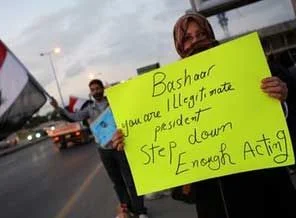 Bashaar
you are Illegitimate
president
Step down
Enough Acting